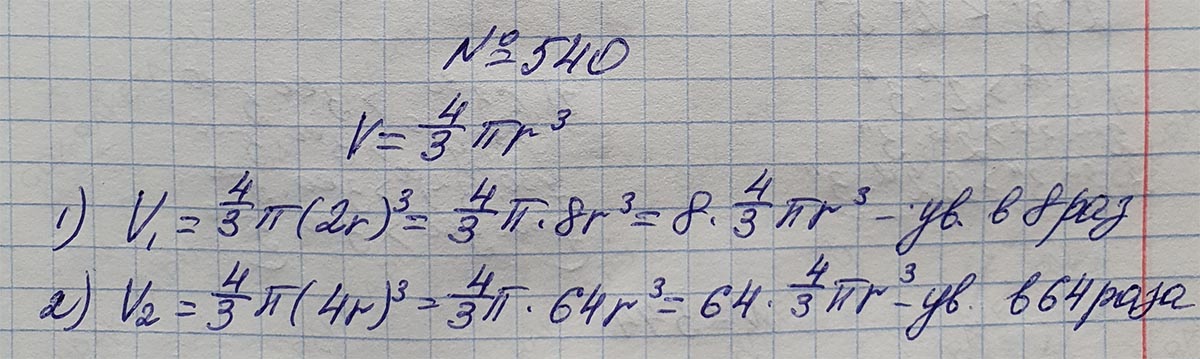 №540
V = 4/3 πr³
1) V₁ = 4/3 π(2r)³ = 4/3 π · 8r³ = 8 · 4/3 πr³ – ув. в 8 раз
2) V₂ = 4/3 π(4r)³ = 4/3 π · 64r³ = 64 · 4/3 πr³ – ув. в 64 раза